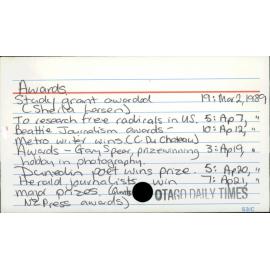 Awards
Study grant awarded 19: Mar 2, 1989
(Sheila Larsen)
To research free radicals in US. 5: Ap 7, "
Beattie Journalism awards - 10: Ap 12, "
Metro writer wins. (C. Du Chateau)
Awards - Gary Spear, prizewinning 3: Ap 19, "
hobby in photography.
Dunedin poet wins prize. 5: Ap 20, "
Herald journalists win 7: Ap 21, "
major prizes. (
NZ Press awards)
OTAGO DAILY TIMES